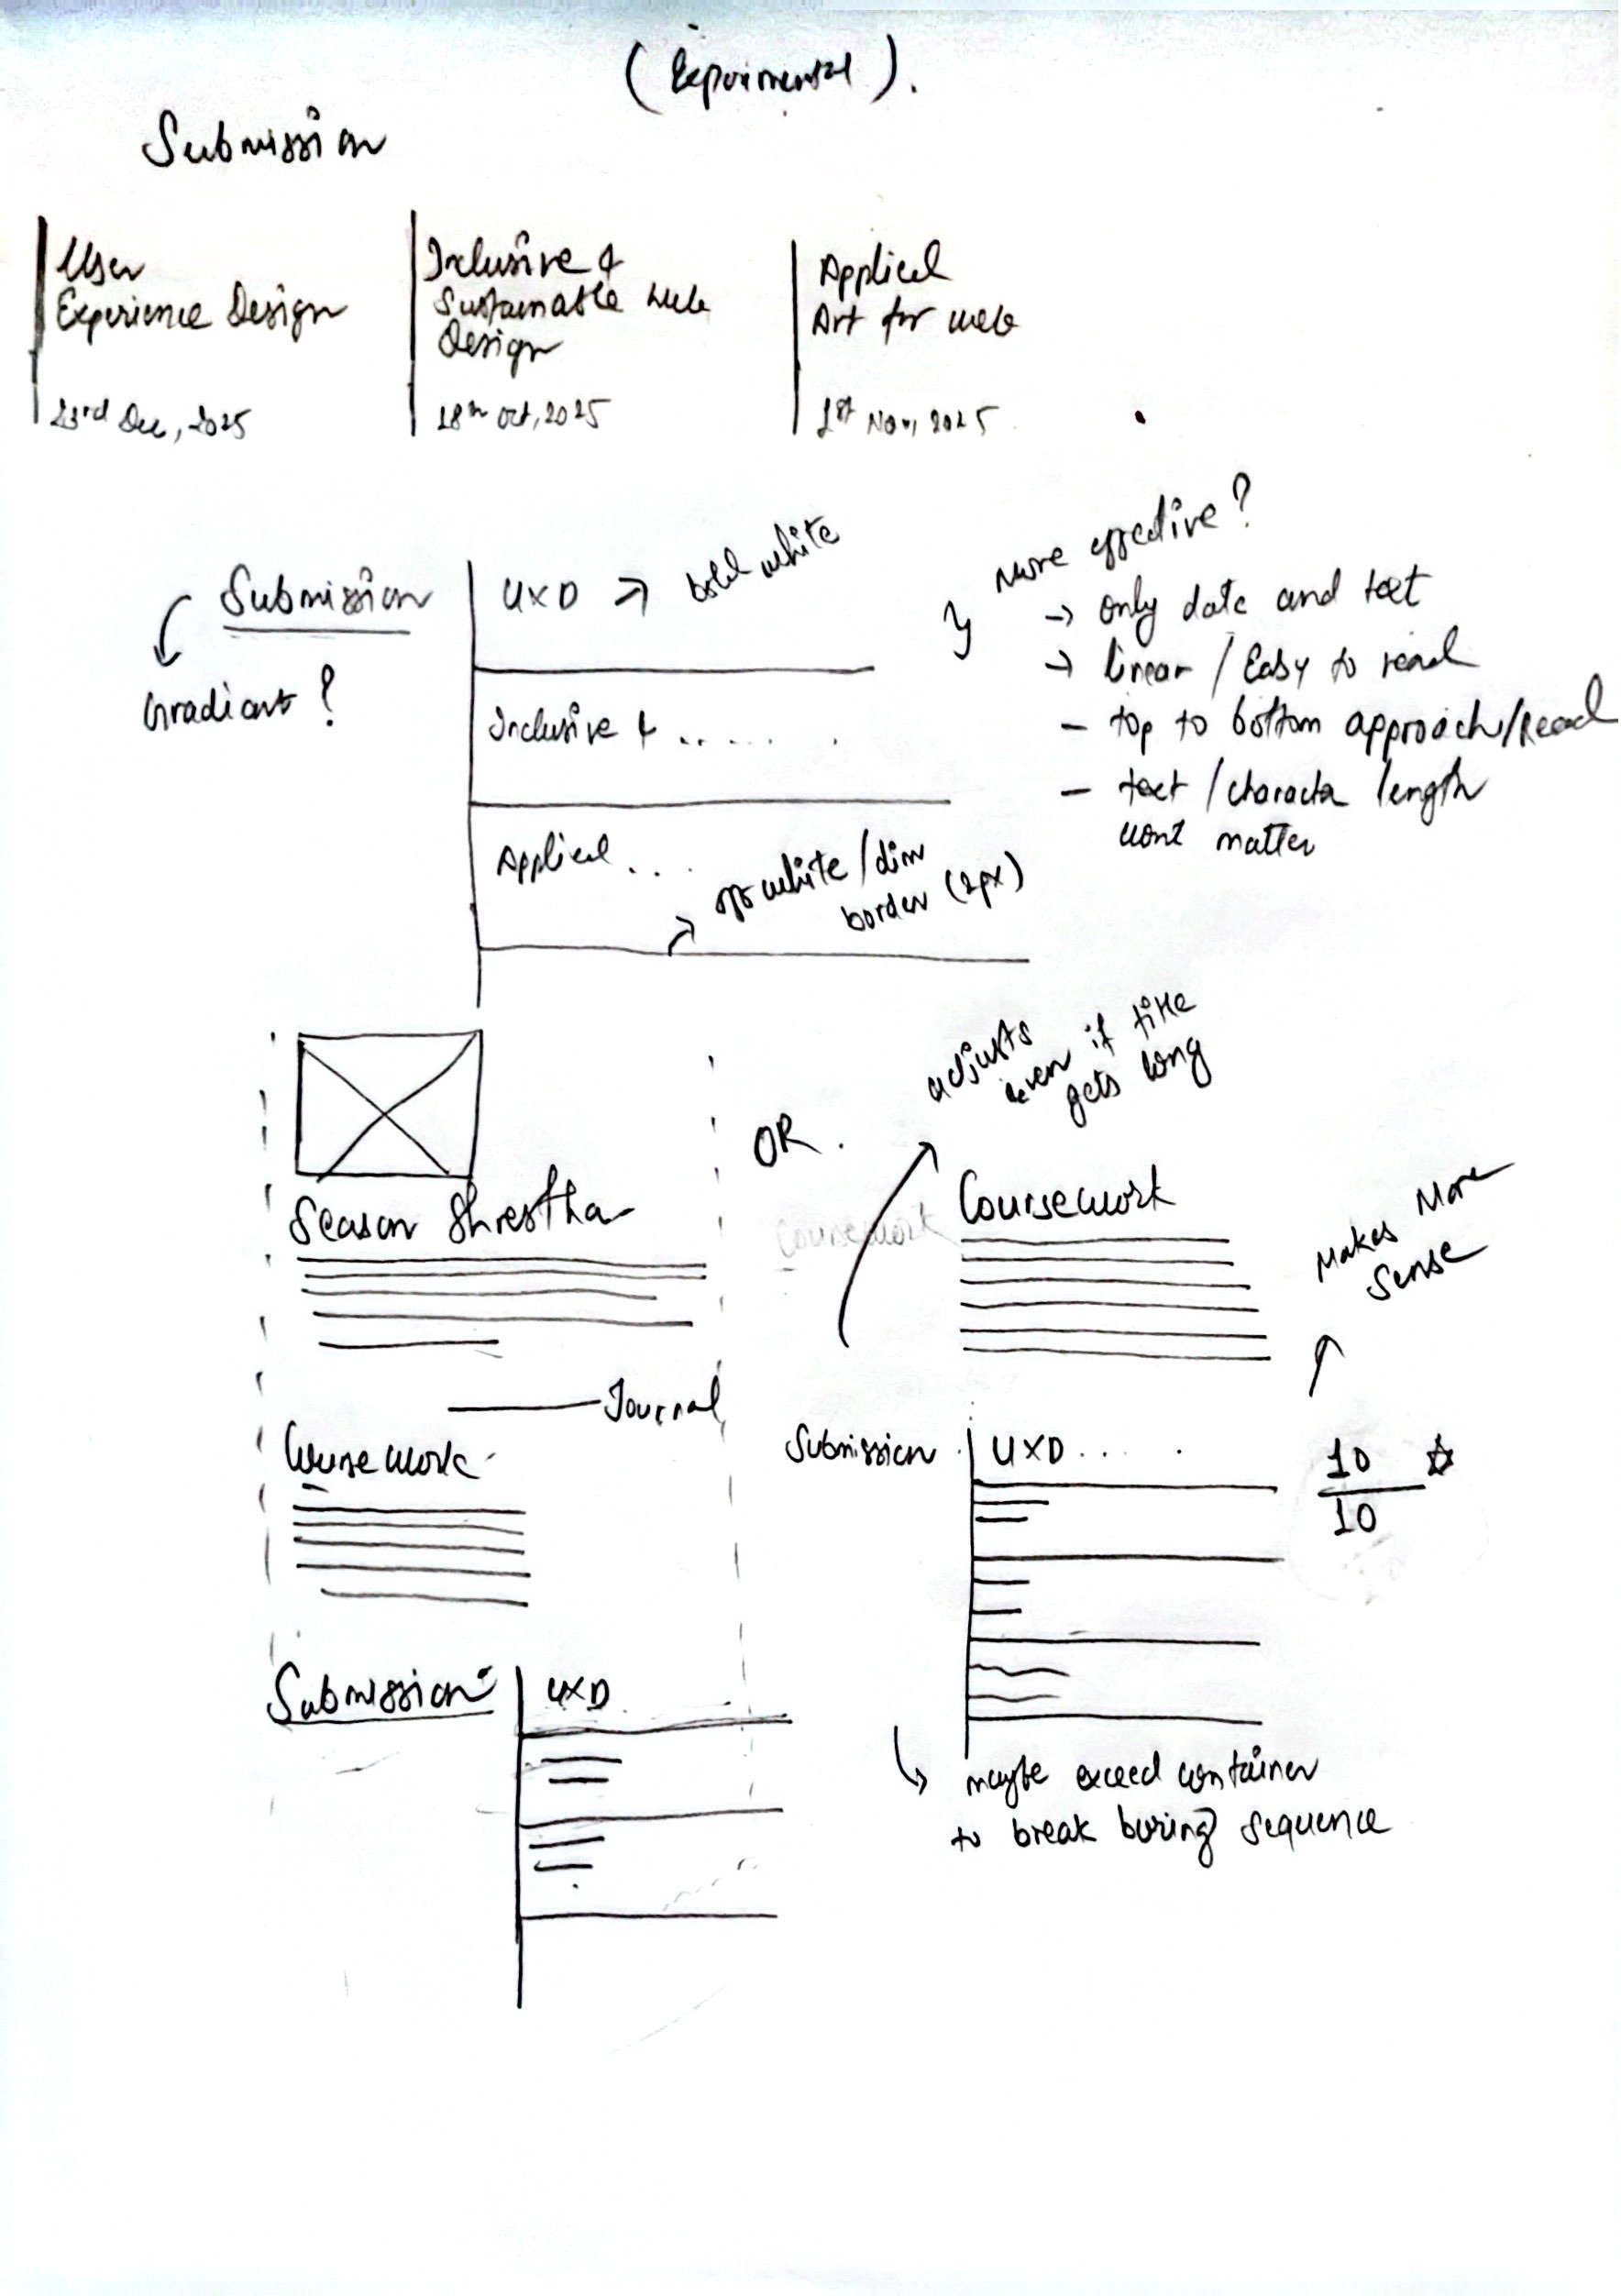 (Experimental).
Submission
User
Experience Design
23rd Dec, 2025
Inclusive &
Sustainable Web
Design
18th Oct, 2025
Applied
Art for web
1st Nov, 2025
Submission
Gradiant?
UXD → bold white
Inclusive & ......
Applied ...
off white / dim
border (2px)
More effective?
→ only date and text
→ linear / Easy to read
- top to bottom approach/Read
- text / character length
wont matter
Season Shrestha
Journal
Coursework
Submission
UXD
OR.
adjusts
even if title
gets long
Coursework
Coursework
Makes More
Sense
Submission
UXD....
10
10
maybe exceed container
to break boring sequence